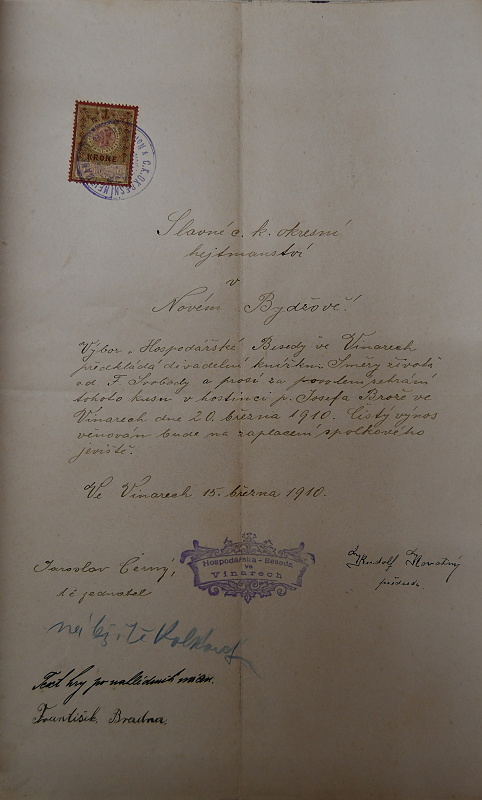 KRONE
Slavné c. k. okresní
hejtmanství
v
Novém Bydžově!
Výbor „Hospodářské Besedy ve Vinarech
předkládá divadelní knížku: Směry života
od F. Svobody a prosí za povolení sehrání
tohoto kusu v hostinci p. Josefa Brože ve
Vinarech dne 20. března 1910. Čistý výnos
věnován bude na zaplacení spolkového
jeviště.
Ve Vinarech 15. března 1910.
Hospodářská-Beseda
ve
Vinarech
Jaroslav Černý,
t. č. jednatel
Rudolf Novotný
předseda
náležitě kolkovat
Text hry po nahlédnutí vrácen.
František Bradna.